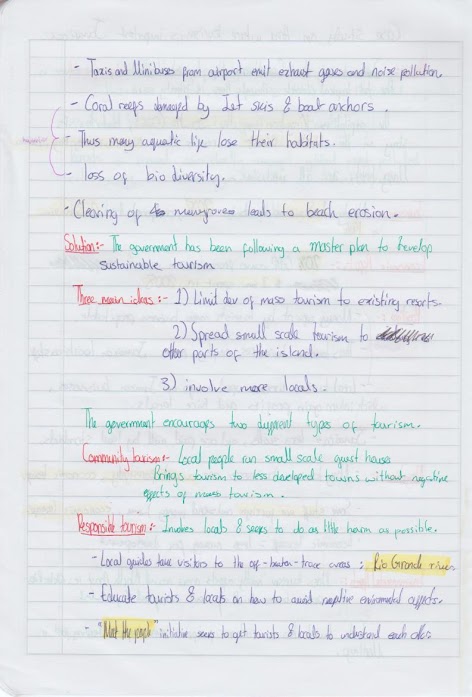 - Taxis and Minibuses from airport emit exhaust gases and noise pollution.
- Coral reefs damaged by Jet skis & boat anchors.
- Thus many aquatic life lose their habitats.
- loss of bio diversity.
- Clearing of mangroves leads to beach erosion.
Solution:- The government has been following a master plan to develop
sustainable tourism
Three main ideas:- 1) Limit dev of mass tourism to existing resorts.
2) Spread small scale tourism to
other parts of the island.
3) involve more locals.
The government encourages two different types of tourism.
Community tourism:- Local people run small scale guest house
Brings tourism to less developed towns without negative
effects of mass tourism.
Responsible tourism:- Involves locals & seeks to do as little harm as possible.
- Local guides take visitors to the off-beaten-trace areas : Rio Grande river
- Educate tourists & locals on how to avoid negative enviromental effects.
- "Meet the people" initiative seeks to get tourists & locals to understand each other